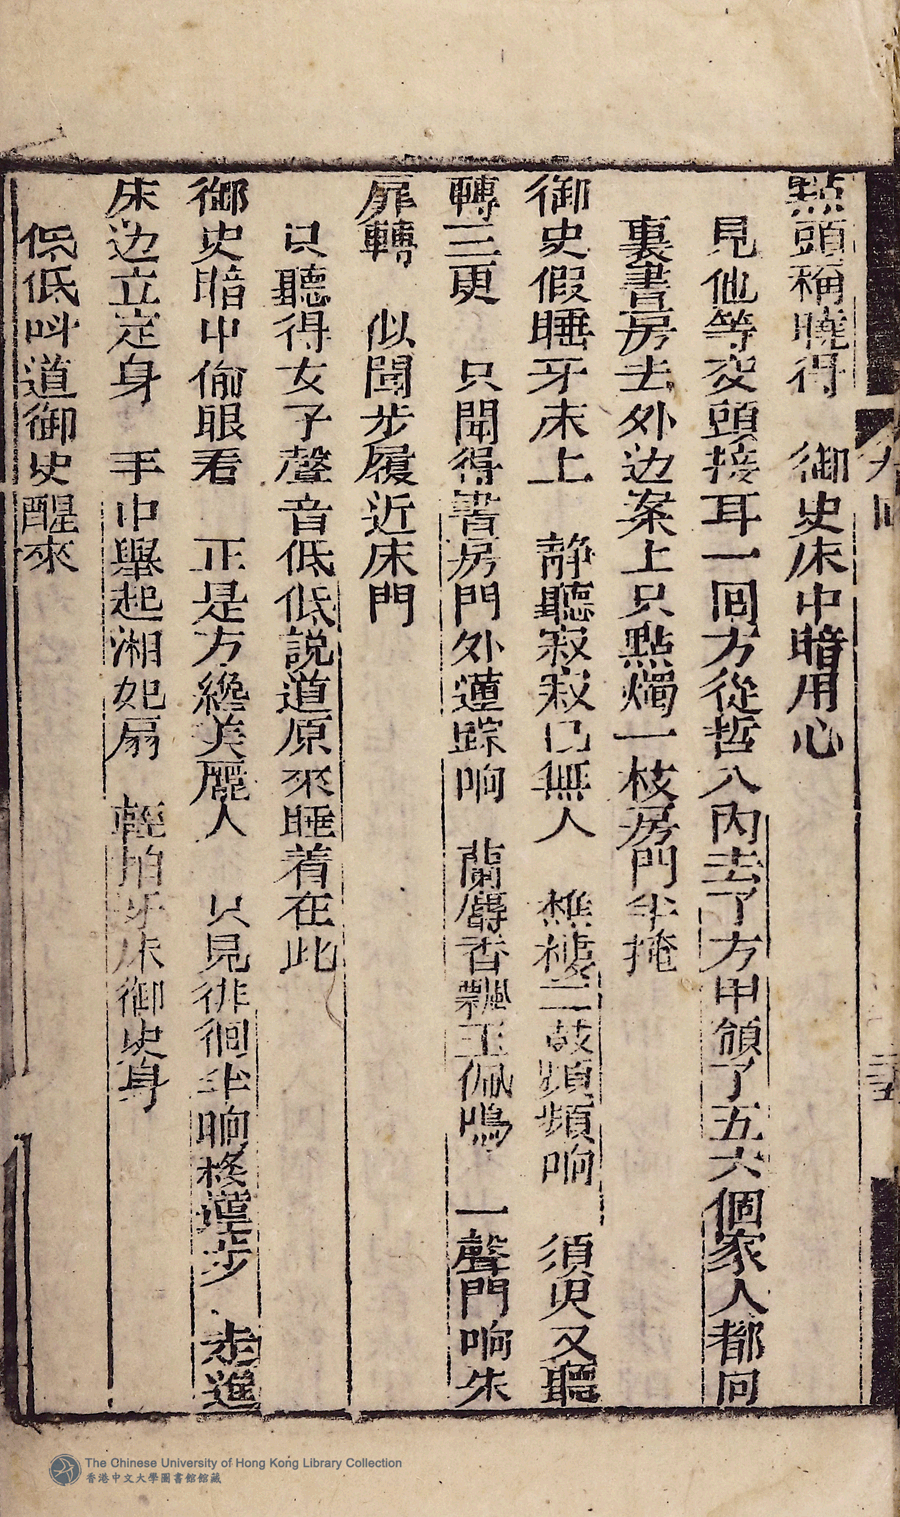 點頭稱曉得　御史床中暗用心
見他等交頭接耳一囘方從哲入內去了方甲領了五六個家人都同
裏書房去外边案上只點燭一枝房門半掩
御史假睡牙床上　静聽寂寂已無人　樵楼二鼓頻頻响　須臾又聽
轉三更　只聞得書房門外蓮踪响　蘭麝香飄玉佩鳴　一聲門响朱
扉轉　似聞步履近床門
只聽得女子聲音低低説道原來睡着在此
御史暗中偷眼看　正是方纔美麗人　只見徘徊半晌移蓮步　走進
床边立定身　手中舉起湘妃扇　輕拍牙床御史身
低低呌道御史醒來
九囘
The Chinese University of Hong Kong Library Collection
香港中文大學圖書館館藏